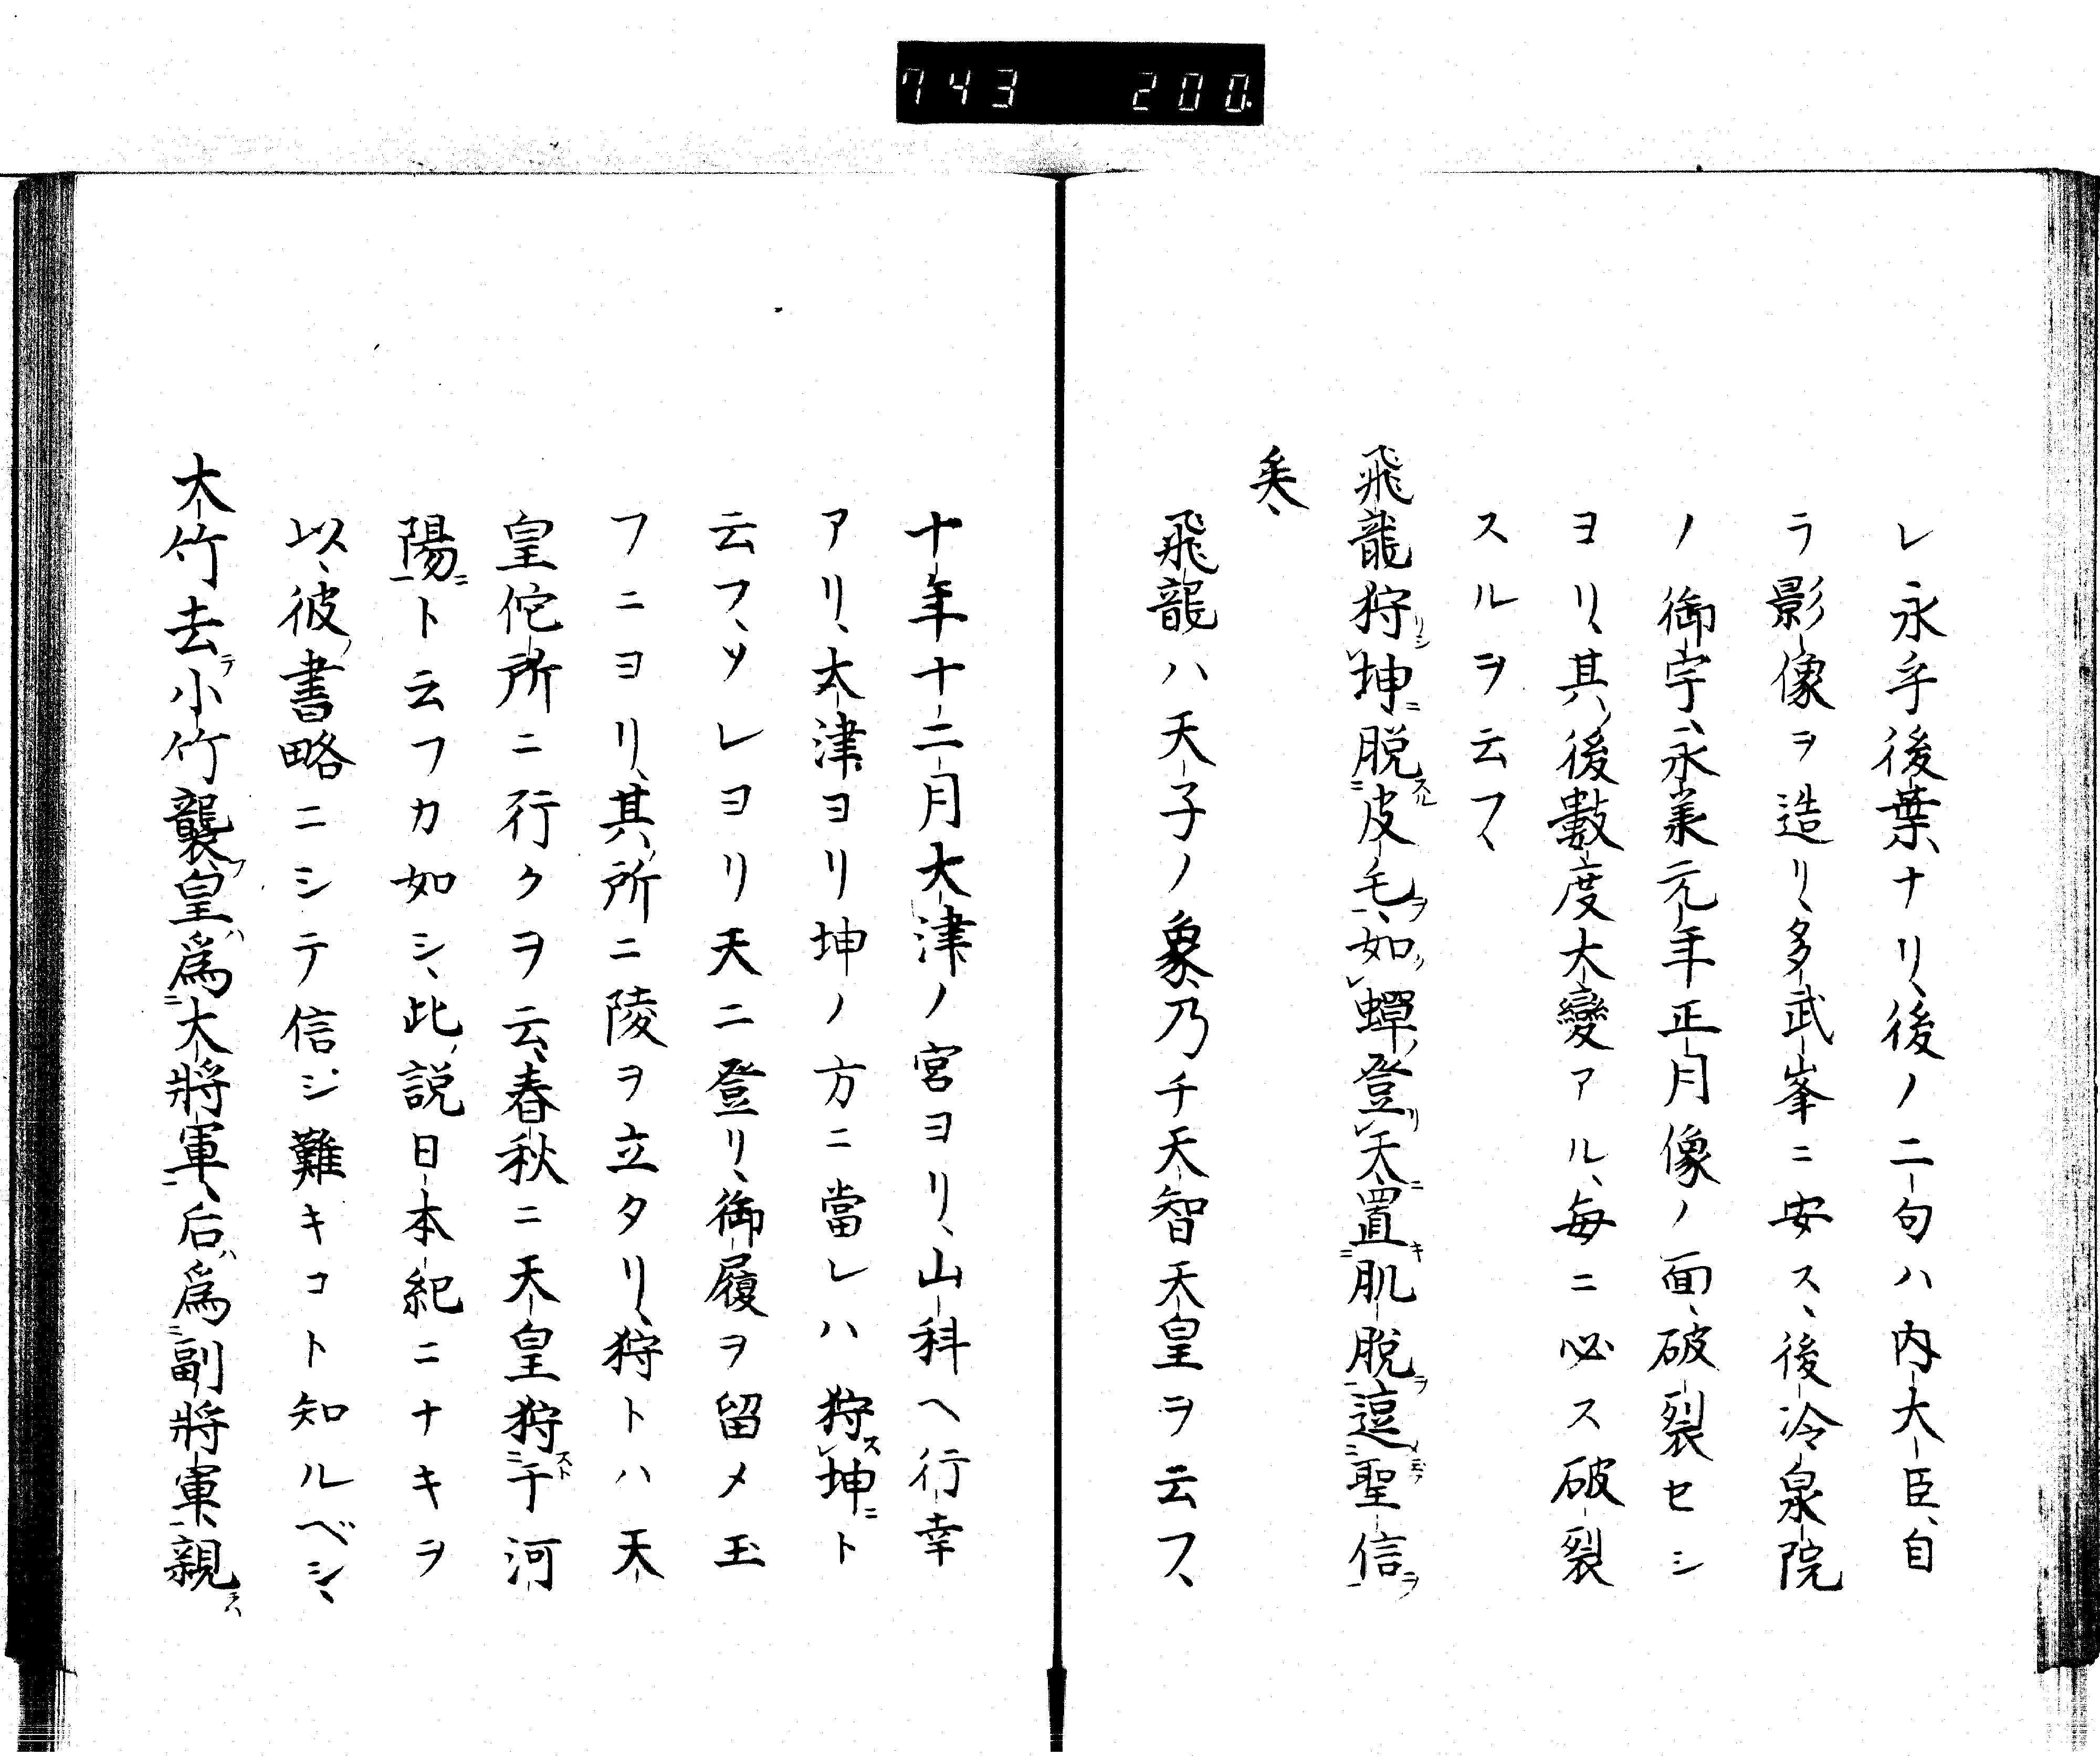 743 200.
レ永手後葉ナリ、後ノ二句ハ内大臣、自
ラ影像ヲ造リ、多武峯ニ安ス、後冷泉院
ノ御宇、永業元年正月像ノ面、破裂セシ
ヨリ、其後數度大變アル、每ニ必ス破裂
スルヲ云フ、
飛龍狩坤脱皮毛、如蟬登天置肌脱逗聖信
矣、
飛龍ハ天子ノ象、乃チ天智天皇ヲ云フ、
十年十二月大津ノ宮ヨリ、山科ヘ行幸
アリ、大津ヨリ坤ノ方ニ當レハ狩坤ト
云フ、ソレヨリ天ニ登リ、御履ヲ留メ玉
フニヨリ、其所ニ陵ヲ立タリ、狩トハ天
皇佗所ニ行クヲ云、春秋ニ天皇狩于河
陽ト云フカ如シ、此說日本紀ニナキヲ
以、彼書略ニシテ信シ難キコト知ルベシ、
大竹去小竹襲皇爲大將軍、后爲副將軍、親